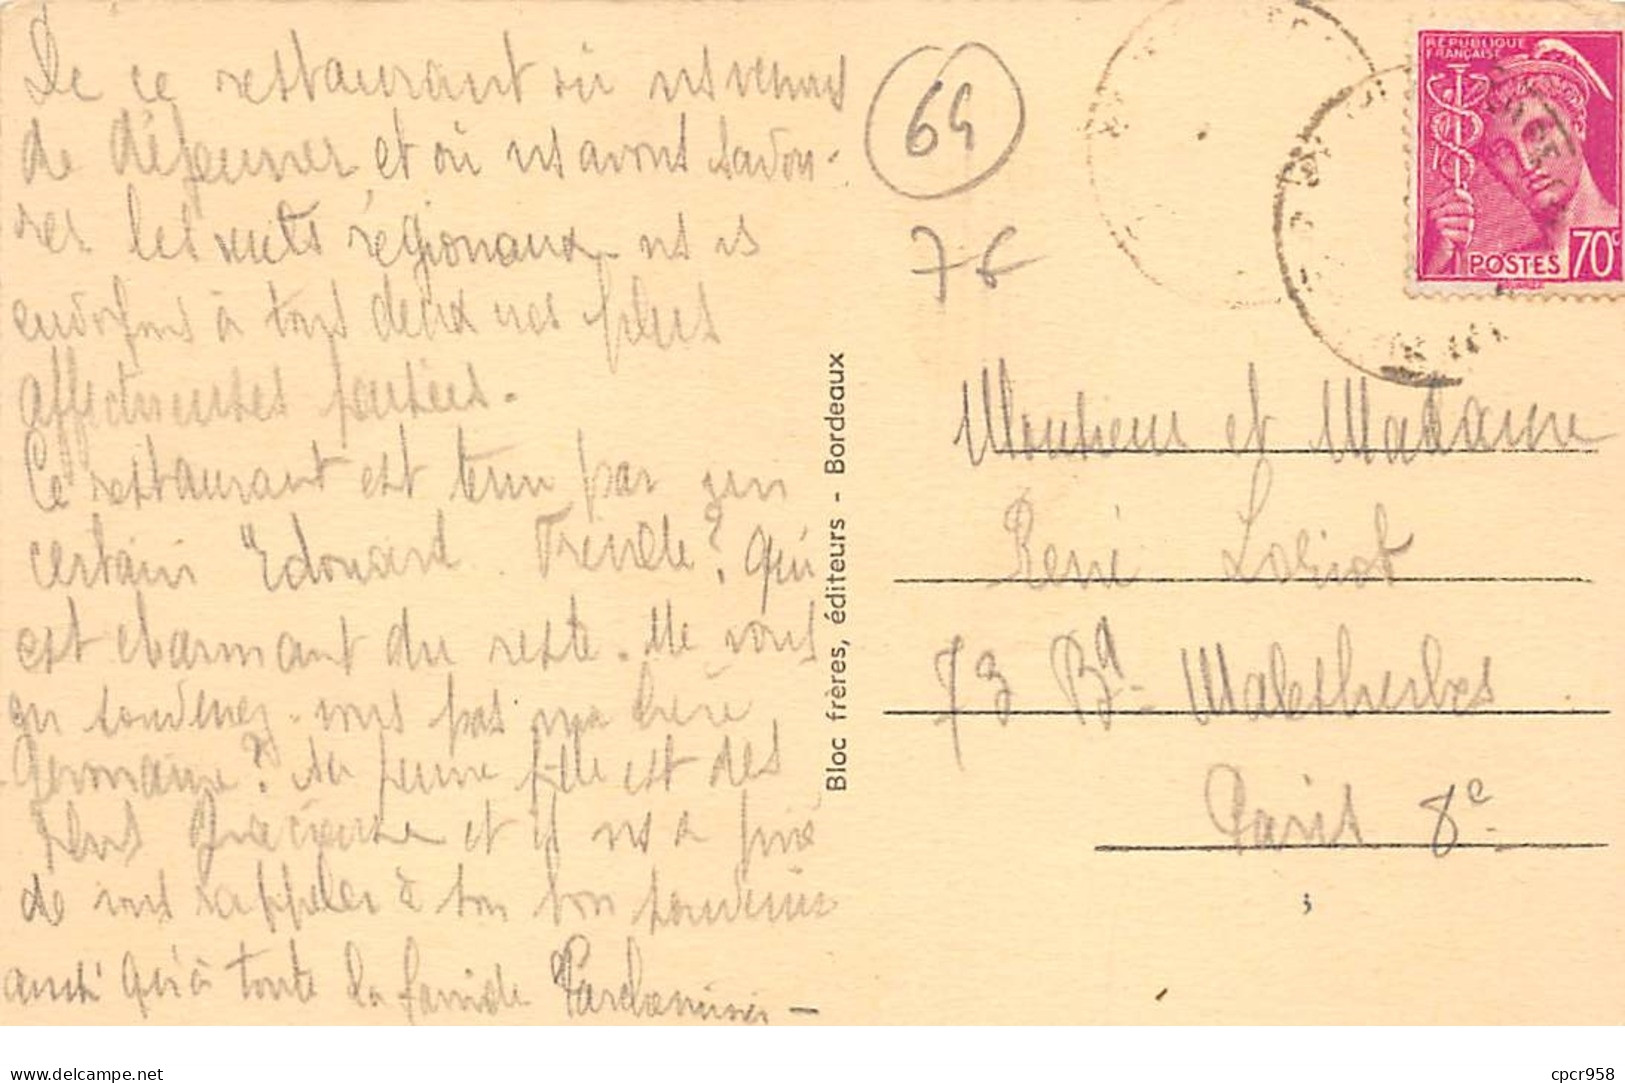 De ce restaurant où ns venons
de déjeuner et où ns avons savou-
rer les mets régionaux ns
à tous deux nos plus
affectueuses pensées.
Ce restaurant est tenu par un
certain "Edouard ? qui
est charmant du reste. Ne vous
en souvenez-vous pas ma chère
Germaine? Sa jeune fille est des
plus gracieuse et il ns a prié
de vous rappeler à son bon souvenir
ainsi qu'à toute la famille
64
7 €
Bloc frères, éditeurs - Bordeaux
RÉPUBLIQUE
FRANÇAISE
POSTES 70c
Monsieur et Madame
René Loriot
73 Bd. Malesherbes
Paris 8e
3
delcampe.net
cpcr958